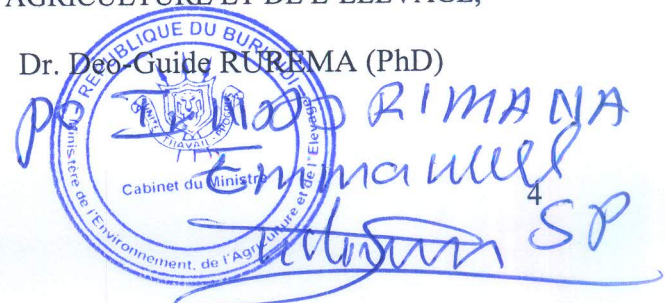 AGRICULTURE ET DE L'ELEVAGE,
Dr. Deo-Guide RUREMA (PhD)
REPUBLIQUE DU BURUNDI
UNITE TRAVAIL PROGRES
Cabinet du Ministre
Ministère de l'Environnement, de l'Agriculture et de l'Elevage
RIMANA
Emmanuel
4
SP